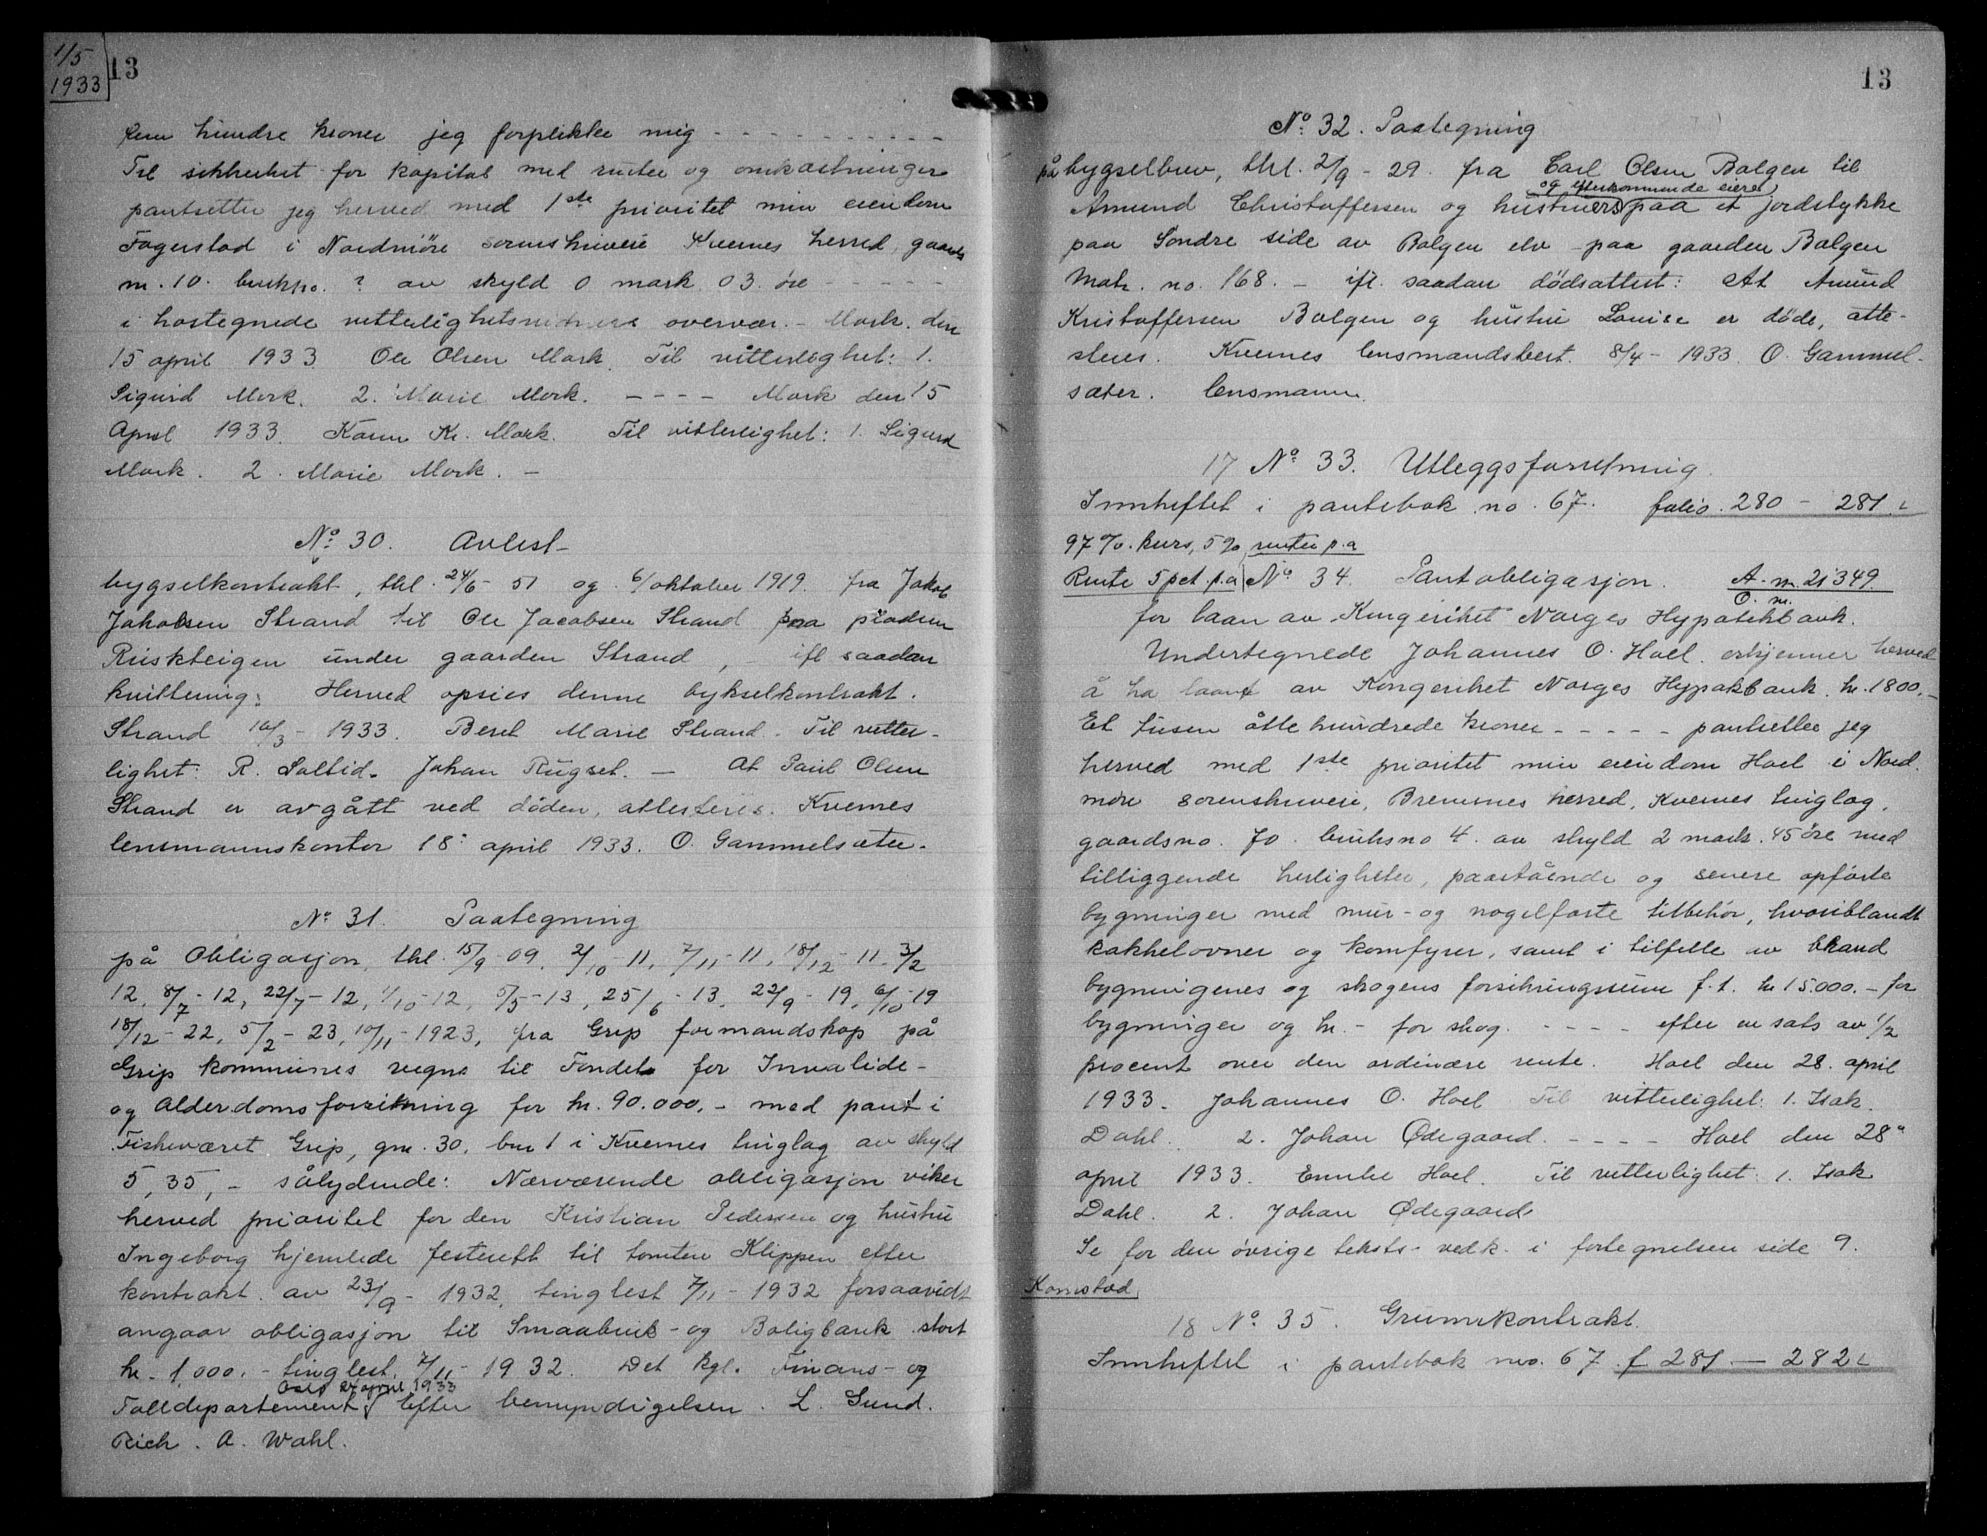 1/5
1933
13
fem hundre kroner jeg forplikter mig - - - - - - - - - -
Til sikkerhet for kapital med renter og omkostninger
pantsetter jeg herved med 1ste prioritet min eiendom
Fagerstad i Nordmöre sorenskriveri Kvernes herred, gaards
nr. 10. bruksno. ? av skyld 0 mark 03 öre - - - - -
i hostegnede vitterlighetsvidners overvær. - Mork. den
15 april 1933 Ole Olsen Mork. Til vitterlighet: 1.
Sigurd Mork. 2. Marie Mork. - - - - Mork den 15
April 1933. Karen Kr. Mork. Til vitterlighet: 1. Sigurd
Mork. 2. Marie Mork. -
No. 30. Avlest
bygselkontrakt, thl. 24/6 - 51 og 6/oktober 1919. fra Jakob
Jakobsen Strand til Ole Jacobsen Strand paa pladsen
Ruskteigen under gaarden Strand, ifl saadan
kvittering: Herved opsies denne bykselkontrakt.
Strand 16/3 - 1933. Beret Marie Strand. Til vitter-
lighet: R. Soltid. Johan Rugset. - At Paul Olsen
Strand er avgått ved döden, attesteres. Kvernes
lensmannskontor 18. april 1933. O. Gammelsæter.
No. 31. Paategning
på Obligasjon, thl. 15/9 - 09. 2/10 - 11, 7/11 - 11, 18/12 - 11. 3/2
12, 8/7 - 12, 22/7 - 12, 1/10 - 12, 5/5 - 13, 25/6 - 13, 22/9 - 19, 6/10 - 19
18/12 - 22, 5/2 - 23, 10/11 - 1923, fra Grip formandskap på
Grip kommunes vegne til Fondet for Invalide-
og Alderdomsforsikring for kr. 90.000,- med pant i
Fiskeværet Grip, gnr. 30, bnr 1 i Kvernes tinglag av skyld
5,35,- sålydende: Nærværende obligasjon viker
herved prioritet for den Kristian Pedersen og hustru
Ingeborg hjemlede festerett til tomten Klippen efter
kontrakt av 23/9 - 1932, tinglest 7/11 - 1932 forsaavidt
angaar obligasjon til Smaabruk- og Boligbank stort
kr. 1.000.- tinglest 7/11 - 1932. Det kgl. Finans- og
Oslo 27 april 1933
Tolldepartement Efter bemyndigelsen. L. Sund.
Rich. A. Wahl.
13
No. 32. Paategning
på bygselbrev, thl. 2/9 - 29. fra Carl Olsen Bolgen til
og efterkommende eiere
Amund Christoffersen og hustrues paa et jordstykke
paa Söndre side av Bolgen elv - paa gaarden Bolgen
Matr. no. 168. - ifl. saadan dödsattest: At Amund
Kristoffersen Bolgen og hustru Louise er döde, atte-
steres. Kvernes lensmandsbest. 8/4 - 1933. O. Gammel-
sæter. lensmann.
17 No. 33. Utleggsforretning
Innheftet i pantebok no. 67. folio. 280 - 281.
97 %. kurs, 5 % renter p.a
Rente 5 pct. p.a No 34. Pantobligasjon. A. nr. 21349.
O. nr.
for laan av Kongeriket Norges Hypotekbank.
Undertegnede Johannes O. Hoel. erkjenner herved
å ha laant av Kongeriket Norges Hypotekbank. kr. 1800,-
Et tusen åtte hundrede kroner - - - - - pantsetter jeg
herved med 1ste prioritet min eiendom Hoel i Nord-
möre sorenskriveri, Bremsnes herred, Kvernes tinglag,
gaardsno. 70. bruksno 4. av skyld 2 mark. 45 öre med
tilliggende herligheter, paastående og senere opförte
bygninger med mur- og nagelfaste tilbehör, hvoriblandt
kakkelovner og komfyrer, samt i tilfelle av brand
bygningenes og skogens forsikringssum f.t. kr 15.000.- for
bygninger og kr. - for skog. - - - - efter en sats av 1/2
procent over den ordinære rente. Hoel den 28. april
1933. Johannes O. Hoel Til vitterlighet: 1. Isak
Dahl. 2. Johan Ødegaard. - - - - Hoel den 28"
april 1933. Emelie Hoel. Til vitterlighet: 1. Isak
Dahl. 2. Johan Ødegaard.
Se for den övrige teksts- vedk. i fortegnelsen side 9.
Komstad
18 No. 35. Grunnkontrakt.
Innheftet i pantebok no. 67. f 281 - 282